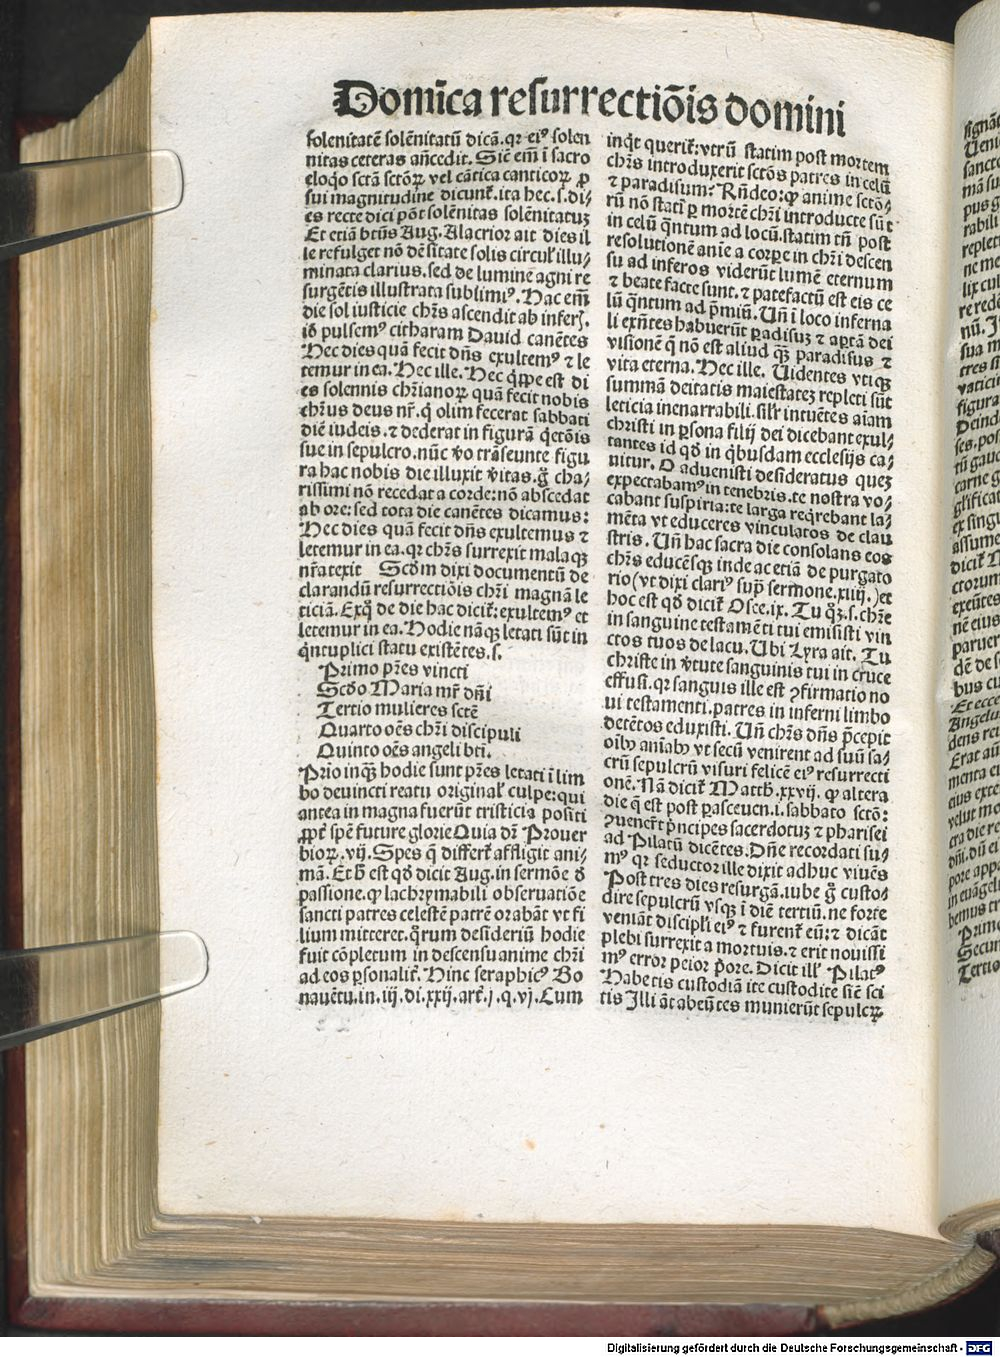 Domīca resurrectiōis domini
solenitatē solēnitatū dicā. qꝛ ei⁹ solen
nitas ceteras añcedit. Sic̄ em̄ ī sacro
eloq̊o sctā sctōꝝ vel cātica canticoꝝ ꝓ
sui magnitudine dicunt̄. ita hec .s. di⸗
es recte dici pōt solēnitas solēnitatuꝫ
Et etiā btūs Aug. Alacrior ait dies il
le refulget nō dēsitate solis circul̓ illu⸗
minata clarius. sed de lumine agni re
surgētis illustrata sublimi⁹. Hac em̄
die sol iusticie chr̄s ascendit ab inferʒ.
iō pulsem⁹ citharam Dauid canētes
Hec dies quā fecit dn̄s exultem⁹ ⁊ le
temur in ea. Hec ille. Hec q̄ppe est di
es solennis chr̄ianoꝝ quā fecit nobis
chr̄us deus nr̄. q̄ olim fecerat sabbati
diē iudeis. ⁊ dederat in figurā q̄etōis
sue in sepulcro. nūc v̓o trāseunte figu
ra hac nobis die illuxit v̓itas. g̊ cha⸗
rissimi nō recedat a corde: nō abscedat
ab ore: sed tota die canētes dicamus:
Hec dies quā fecit dn̄s exultemus ⁊
letemur in ea. qꝛ chr̄s surrexit malaqꝫ
nr̄a texit Scd̓m dixi documentū de
clarandū resurrectiōis chr̄i magnā le
ticiā. Exq̊ de die hac dicit̄: exultem⁹ et
letemur in ea. Hodie nāqꝫ letati sūt in
q̄ntuplici statu existētes .s.
Primo pr̄es vincti
Scd̓o Maria mr̄ dn̄i
Tertio mulieres sctē
Quarto oēs chr̄i discipuli
Quinto oēs angeli bti̅.
Prīo inqꝫ hodie sunt pr̄es letati ī lim
bo deuincti reatu original̓ culpe: qui
antea in magna fuerūt tristicia positi
ꝓpt̓ spē future glorie Quia dr̄ Prouer
bioꝝ. vij. Spes q̄ differt̄ affligit ani⸗
mā. Et h̄ est qd̓ dicit Aug. in sermōe d̓
passione. ꝙ lachrymabili obseruatiōe
sancti patres celestē patrē orabāt vt fi
lium mitteret. q̊rum desideriū hodie
fuit cōpletum in descensu anime chr̄i
ad eos ꝑsonalit̓. Hinc seraphic⁹ Bo
nauētu. in. iij. di. xxij. art̓. j. q. vj. Cum
inq̄t querit̄: vtrū statim post mortem
chr̄s introduxerit sctōs patres in celū
⁊ paradisum? Rn̄deo: ꝙ anime sctō⸗
rū nō statī ꝑ mortē chr̄i introducte sūt
in celū q̄ntum ad locū. statim tn̄ post
resolutionē anīe a corꝑe in chr̄i descen
su ad inferos viderūt lumē eternum
⁊ beate facte sunt. ⁊ patefactū est eis ce
lū q̄ntum ad p̄miū. Un̄ ī loco inferna
li exn̄tes habuerūt ꝑadisuꝫ ⁊ aꝑtā dei
visionē q̄ nō est aliud qꝫ̄ paradisus ⁊
vita eterna. Hec ille. Uidentes vtiqꝫ
summā deitatis maiestateꝫ repleti sūt
leticia inenarrabili. sil̓r intuētes aīam
christi in ꝑsona filij dei dicebant exul⸗
tantes id qd̓ in q̄busdam ecclesijs ca⸗
nitur. O aduenisti desideratus queꝫ
expectabam⁹ in tenebris. te nostra vo⸗
cabant suspiria: te larga req̄rebant la⸗
mēta vt educeres vinculatos de clau
stris. Un̄ hac sacra die consolans eos
chr̄s educēsqꝫ inde ac etiā de purgato
rio (vt dixi clari⁹ sup̄ sermone. xliij.) et
hoc est qd̓ dicit̄ Osee. ix. Tu q̊ꝫ .s. chr̄e
in sanguine testamēti tui emisisti vin
ctos tuos de lacu. Ubi Lyra ait. Tu
christe in v̓tute sanguinis tui in cruce
effusi. qꝛ sanguis ille est ꝯfirmatio no
ui testamenti. patres in inferni limbo
detētos eduxisti. Un̄ chr̄s dn̄s p̄cepit
oīb⁹ anīab⁹ vt secū venirent ad suū sa⸗
crū sepulcrū visuri felicē ei⁹ resurrecti
onē. Nā dicit̄ Matth. xxvij. ꝙ altera
die q̄ est post ꝑasceuen .i. sabbato sctō:
ꝯuenert̄ p̄ncipes sacerdotuꝫ ⁊ pharisei
ad Pilatū dicētes. Dn̄e recordati su⸗
m⁹ qꝛ seductor ille dixit adhuc viuēs
Post tres dies resurgā. iube g̊ custo⸗
dire sepulcrū vsqꝫ ī diē tertiū. ne forte
veniāt discipl̓i ei⁹ ⁊ furent̄ eū: ⁊ dicāt
plebi surrexit a mortuis. ⁊ erit nouissi
m⁹ error peior p̄ore. Dicit ill̓ Pilat⁹
Habetis custodiā ite custodite sic̄ sci
tis Illi āt abeūtes munierūt sepulcꝝ
Digitalisierung gefördert durch die Deutsche Forschungsgemeinschaft - DFG